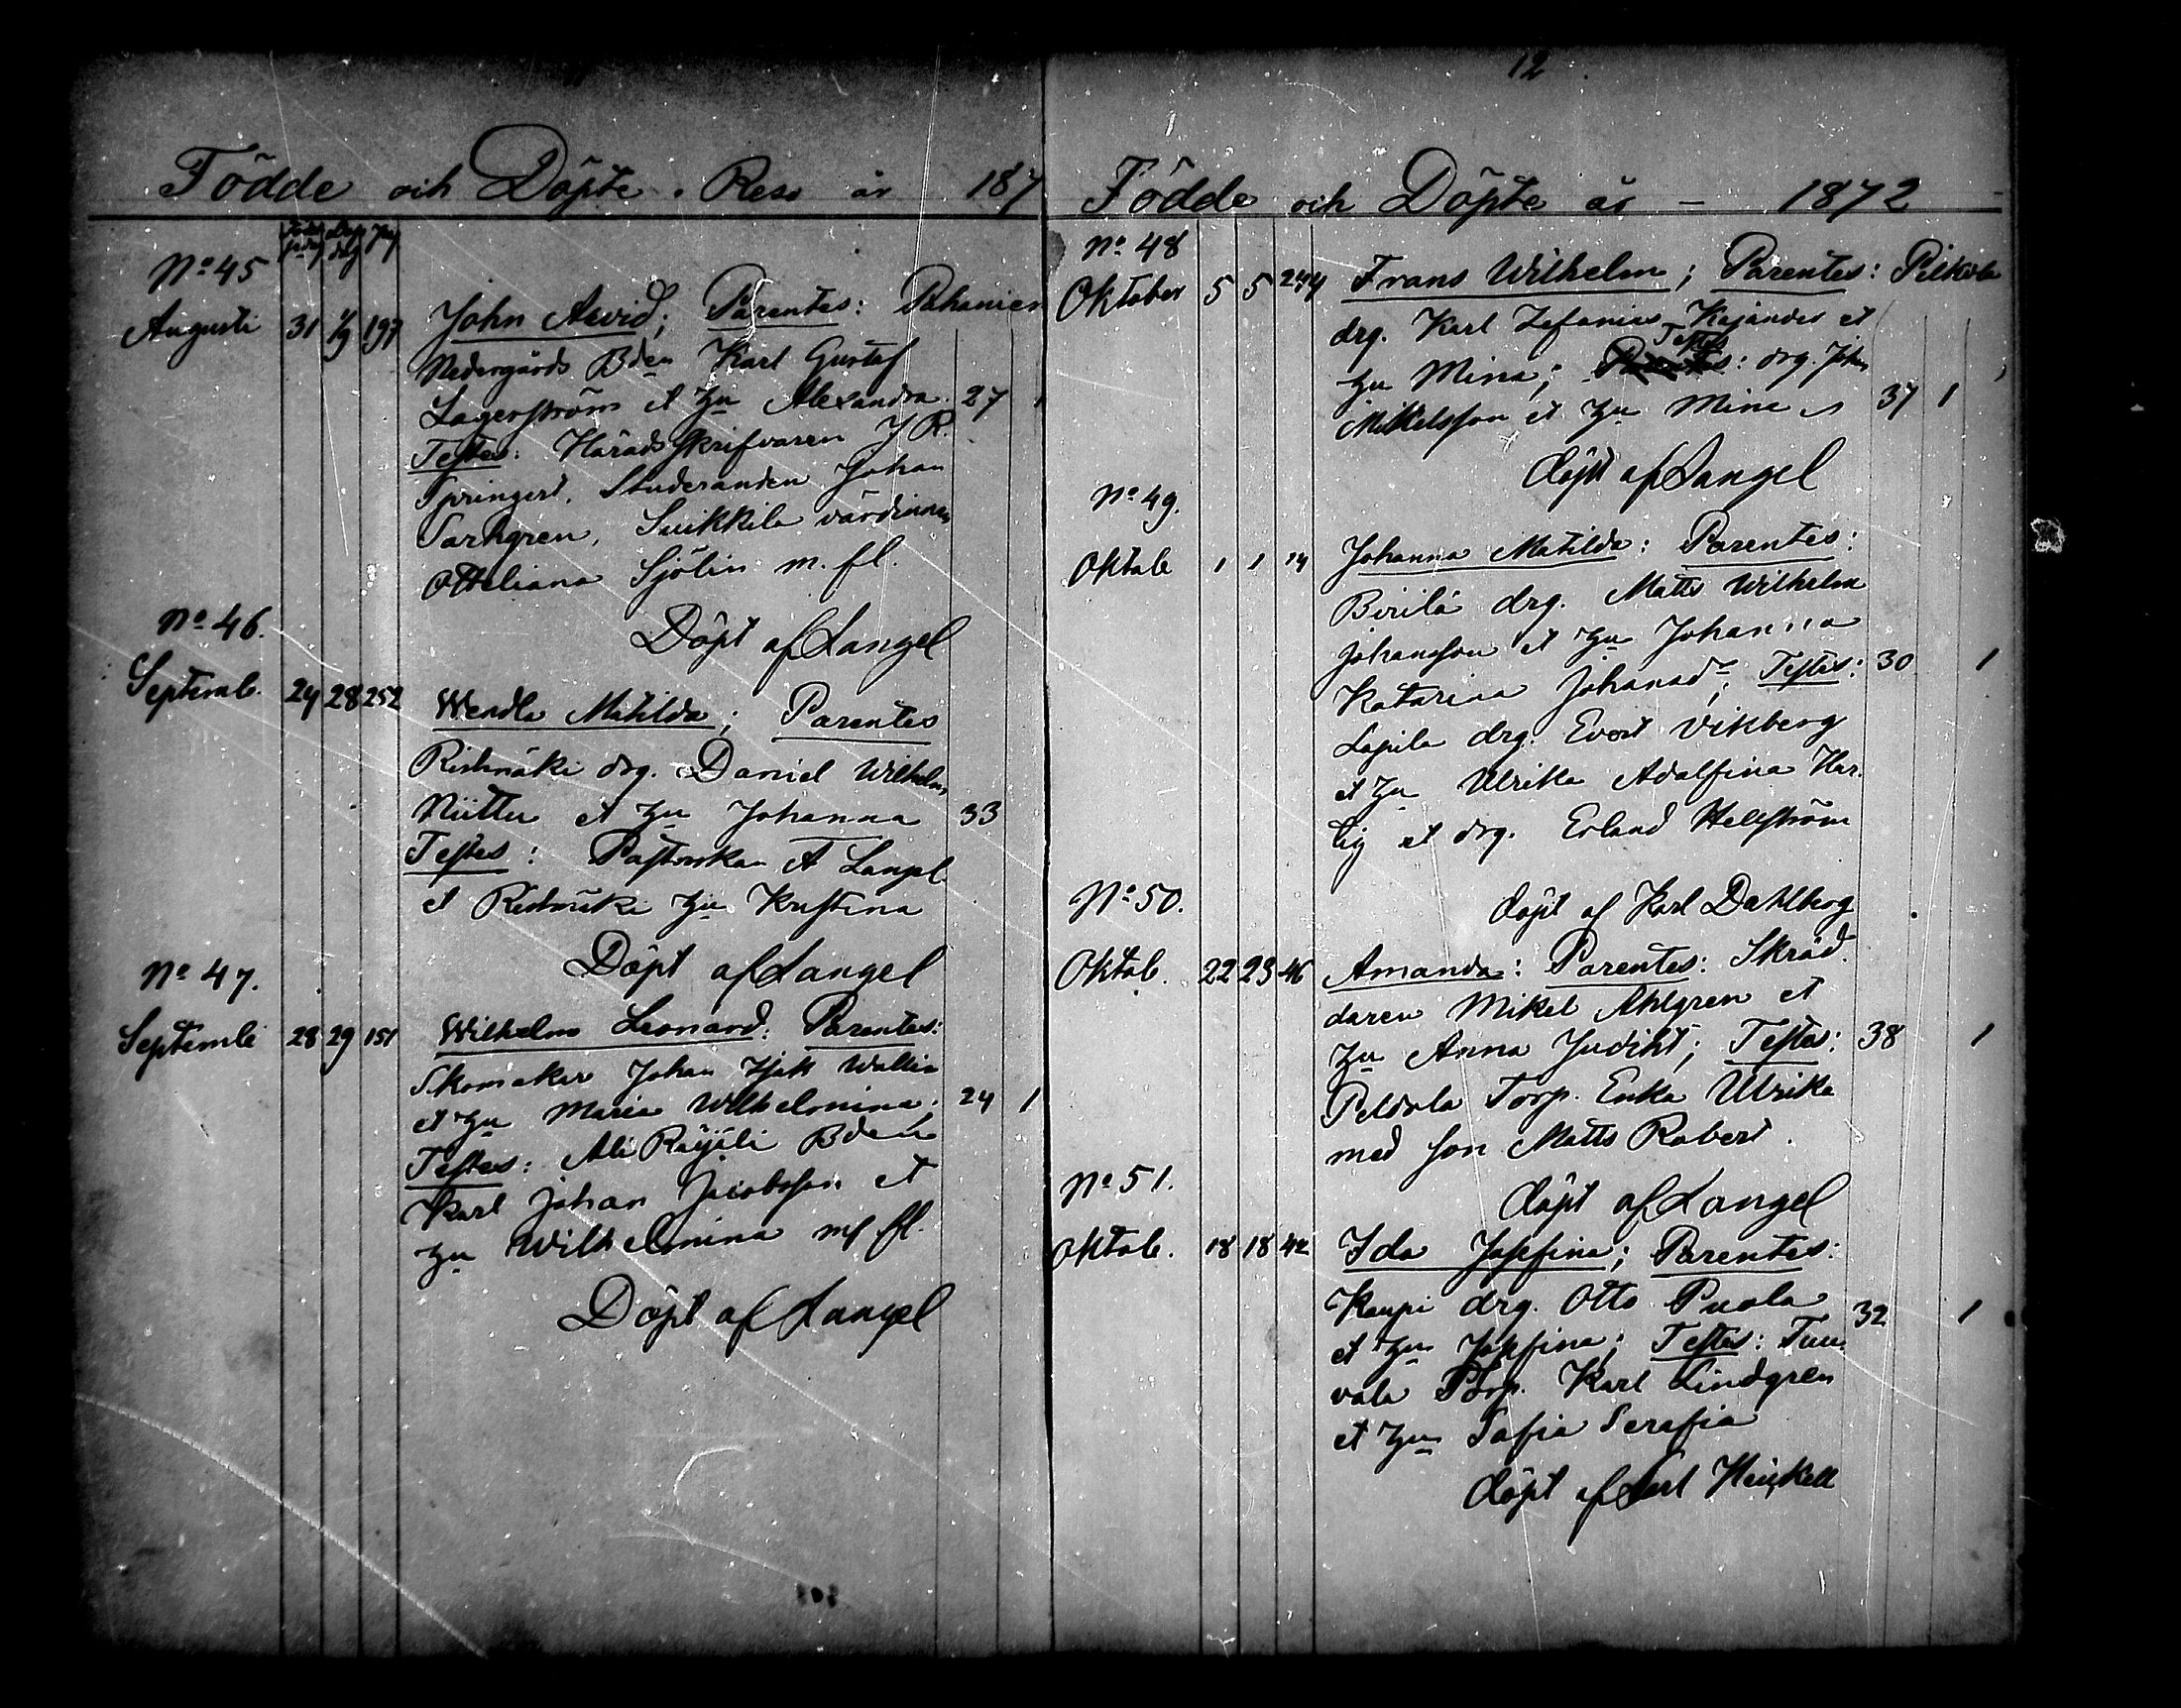 Födde och Döpte i Reso år 187
No 45
Augusti 31 1/9 197 John Arvid; Parentes: Pahanier
Nedergårds Bden Karl Gustaf
Lagerström et hu Alexandra. 27 1
Testes: Häradsskrifvaren J R.
Springert, Studeranden Johan
Sarhgren, Suikkila värdinnan
Otteliana Sjölin m. fl.
Döpt af Langel
No 46.
Septemb. 24 28 252 Wendla Matilda; Parentes
Ristimäki drg. Daniel Wilhelm
Niittu et hu Johanna 33
Testes: Pastorskan A Langel
et Ristimäki hu Kristina
Döpt af Langel
No 47.
Septemb 28 29 151 Wilhelm Leonard: Parentes:
Skomakar Johan Isak Wallin
et hu Maria Wilhelmina; 24 1
Testes: Ali Bden
Karl Johan Jacobsson et
hu Wilhelmina m fl.
Döpt af Langel
12
Födde och Döpte år – 1872
No 48
Oktober 5 5 244 Frans Wilhelm; Parentes: Pilkola
drg. Karl Zefanias Kajandes et
hu Mina; Testes: drg. Johan
Mikelsson et hu Mina 37 1
döpt af Langel
No 49.
Oktob 1 1 14 Johanna Matilda: Parentes:
Birilä drg. Matts Wilhelm
Johansson et hu Johanna
Katarina Johansdr; Testes: 30 1
Lapila drg. Evert Vikberg
et hu Ulrika Adolfina Här-
lig et drg. Erland Hellström
döpt af Karl Dahlberg
No 50.
Oktob. 22 23 46 Amanda: Parentes: Skräd-
daren Mikel Ahlgren et
hu Anna Judiht; Testes: 38 1
Peldola Torp. Enka Ulrika
med son Matts Robert.
döpt af Langel
No 51.
Oktob. 18 18 42 Ida Josefina; Parentes:
Kaupi drg. Otto Puola
et hu Josefina; Testes: Tuu- 32 1
vala Torp. Karl Lindgren
et hu Sofia Serafia
döpt af Karl Heickell